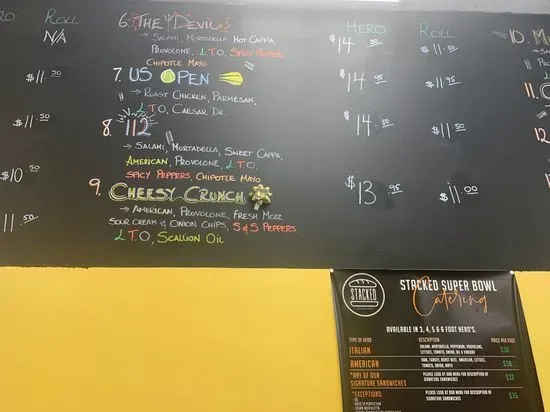 RO ROLL
N/A
$11.50
$11.50
$10.50
11.50
6. THE DEVIL
→ SALAMI, MORTADELLA, HOT CAPPA,
PROVOLONE, L.T.O, SPICY PEPPERS
CHIPOTLE MAYO
7. US OPEN
→ ROAST CHICKEN, PARMESAN,
L.T.O, CAESAR DR.
8. 112
→ SALAMI, MORTADELLA, SWEET CAPPA,
AMERICAN, PROVOLONE, L.T.O,
SPICY PEPPERS, CHIPOTLE MAYO
9. CHEESY CRUNCH
→ AMERICAN, PROVOLONE, FRESH MOZZ,
SOUR CREAM & ONION CHIPS, S&S PEPPERS
L.T.O, SCALLION OIL
HERO ROLL
$14.50 $11.50
$14.95 $11.95
$14.50 $11.50
$13.95 $11.00
10. M
11. C
12
STACKED
STACKED SUPER BOWL
Catering
AVAILABLE IN 3, 4, 5 & 6 FOOT HERO'S.
TYPE OF HERO DESCRIPTION PRICE PER FOOT
ITALIAN SALAMI, MORTADELLA, PEPPERONI, PROVOLONE, $30
LETTUCE, TOMATO, ONION, OIL & VINEGAR
AMERICAN HAM, TURKEY, ROAST BEEF, AMERICAN, LETTUCE, $30
TOMATO, ONION, MAYO
*ANY OF OUR PLEASE LOOK AT OUR MENU FOR DESCRIPTION $32
SIGNATURE SANDWICHES OF SIGNATURE SANDWICHES
*EXCEPTIONS: PLEASE LOOK AT OUR MENU FOR DESCRIPTION $35
OF SIGNATURE SANDWICHES